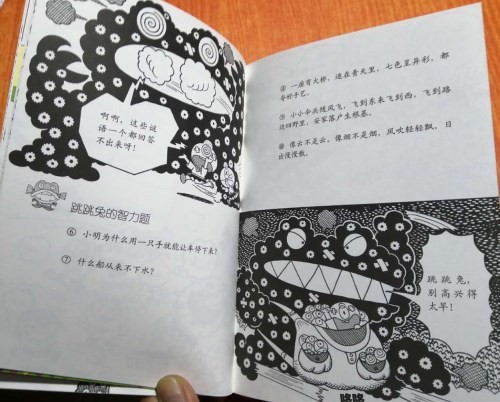 啊啊，这些谜
语一个都回答
不出来呀！
跳跳兔的智力题
⑥ 小明为什么用一只手就能让车停下来？
⑦ 什么船从来不下水？
⑧ 一座有大桥，迷在青天里，七色呈异彩，都
夸好手艺。
⑨ 小小伞兵随风飞，飞到东来飞到西，飞到路
边田野里，安家落户生根基。
⑩ 像云不是云，像烟不是烟，风吹轻轻飘，日
出慢慢散。
跳跳兔，
别高兴得
太早！
咯咯